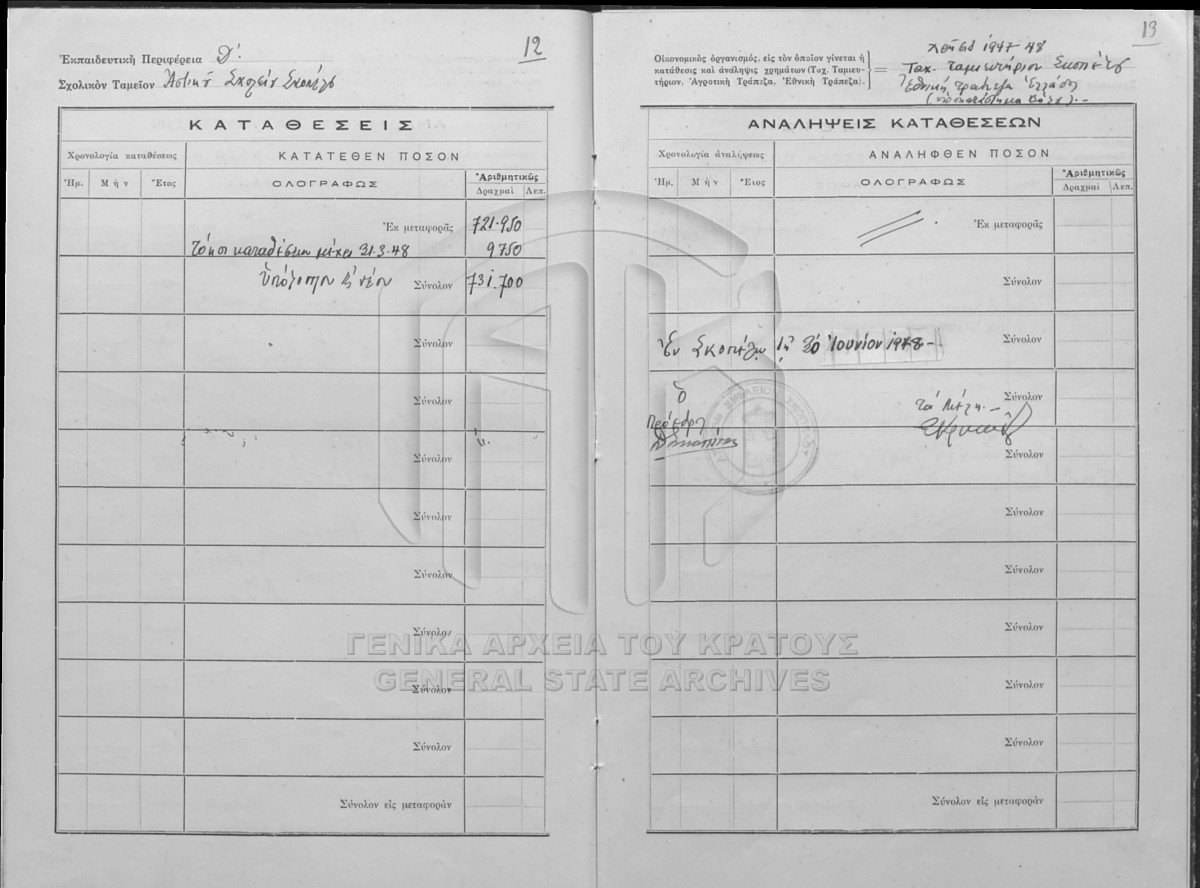 12
Ἐκπαιδευτικὴ Περιφέρεια Δ΄.
Σχολικὸν Ταμεῖον Ἀστικῆς Σχολῆς Σκοπέλου
ΚΑΤΑΘΕΣΕΙΣ
Χρονολογία καταθέσεως
ΚΑΤΑΤΕΘΕΝ ΠΟΣΟΝ
Ἡμ. Μήν Ἔτος
ΟΛΟΓΡΑΦΩΣ
Ἀριθμητικῶς
Δραχμαὶ Λεπ.
Ἐκ μεταφορᾶς 721.950
Τόκοι καταθέσεων μέχρι 31.3.48 9750
Ὑπόλοιπον εἰς νέον Σύνολον 731.700
Σύνολον
Σύνολον
Σύνολον
Σύνολον
Σύνολον
Σύνολον
Σύνολον
Σύνολον
Σύνολον εἰς μεταφορὰν
13
1947-48
Οἰκονομικὸς ὀργανισμός, εἰς τὸν ὁποῖον γίνεται ἡ
κατάθεσις καὶ ἀνάληψις χρημάτων (Ταχ. Ταμιευ-
τήριον, Ἀγροτικὴ Τράπεζα, Ἐθνικὴ Τράπεζα).
= Ταχ. Ταμιευτήριον Σκοπέλου
Ἐθνικὴ Τράπεζα Ἑλλάδος
(ὑποκατάστημα Βόλου).-
ΑΝΑΛΗΨΕΙΣ ΚΑΤΑΘΕΣΕΩΝ
Χρονολογία ἀναλήψεως
ΑΝΑΛΗΦΘΕΝ ΠΟΣΟΝ
Ἡμ. Μήν Ἔτος
ΟΛΟΓΡΑΦΩΣ
Ἀριθμητικῶς
Δραχμαὶ Λεπ.
Ἐκ μεταφορᾶς
Σύνολον
Ἐν Σκοπέλῳ τῇ 30 Ἰουνίου 1948 - - Σύνολον
Ὁ
Πρόεδρος
τὰ Μέλη. - Σύνολον
Σύνολον
Σύνολον
Σύνολον
Σύνολον
Σύνολον
Σύνολον
Σύνολον εἰς μεταφορὰν
ΓΕΝΙΚΑ ΑΡΧΕΙΑ ΤΟΥ ΚΡΑΤΟΥΣ
GENERAL STATE ARCHIVES